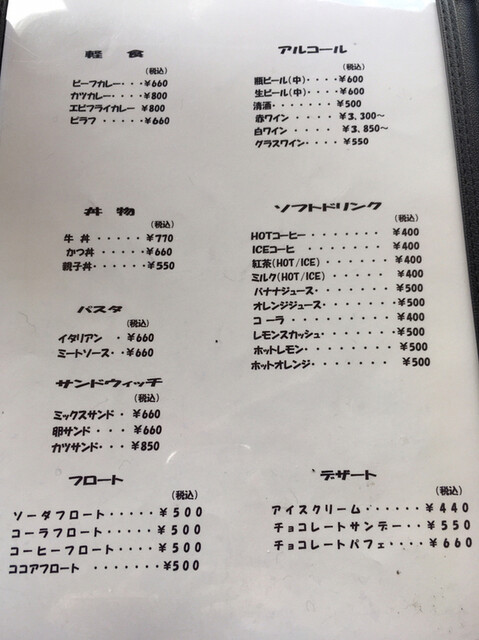 軽食
(税込)
ビーフカレー・・・¥660
カツカレー・・・・¥800
エビフライカレー ¥800
ピラフ ・・・・・¥660
丼物
(税込)
牛丼・・・・・・¥770
かつ丼・・・・・¥660
親子丼・・・・・¥550
パスタ
(税込)
イタリアン ・¥660
ミートソース・・¥660
サンドウィッチ
(税込)
ミックスサンド・¥660
卵サンド・・・¥660
カツサンド・・・¥850
フロート
(税込)
ソーダフロート・・・・・¥500
コーラフロート・・・・・¥500
コーヒーフロート・・・・¥500
ココアフロート ・・・・・・・¥500
アルコール
(税込)
瓶ビール(中)・・・・¥600
生ビール(中)・・・・¥600
清酒・・・・・・・¥500
赤ワイン ・・・・¥3,300~
白ワイン ・・・・¥3,850~
グラスワイン・・・・¥550
ソフトドリンク
(税込)
HOTコーヒー・・・・・・・・¥400
ICEコーヒ ・・・・・・・・¥400
紅茶(HOT/ICE)・・・・・・¥400
ミルク(HOT/ICE)・・・・・・¥400
バナナジュース・・・・・・・¥500
オレンジジュース・・・・・・¥500
コーラ・・・・・・・・・・¥400
レモンスカッシュ・・・・・・¥500
ホットレモン・・・・・・・・¥500
ホットオレンジ・・・・・・・¥500
デザート
(税込)
アイスクリーム・・・・・¥440
チョコレートサンデー・・¥550
チョコレートパフェ・・・・¥660